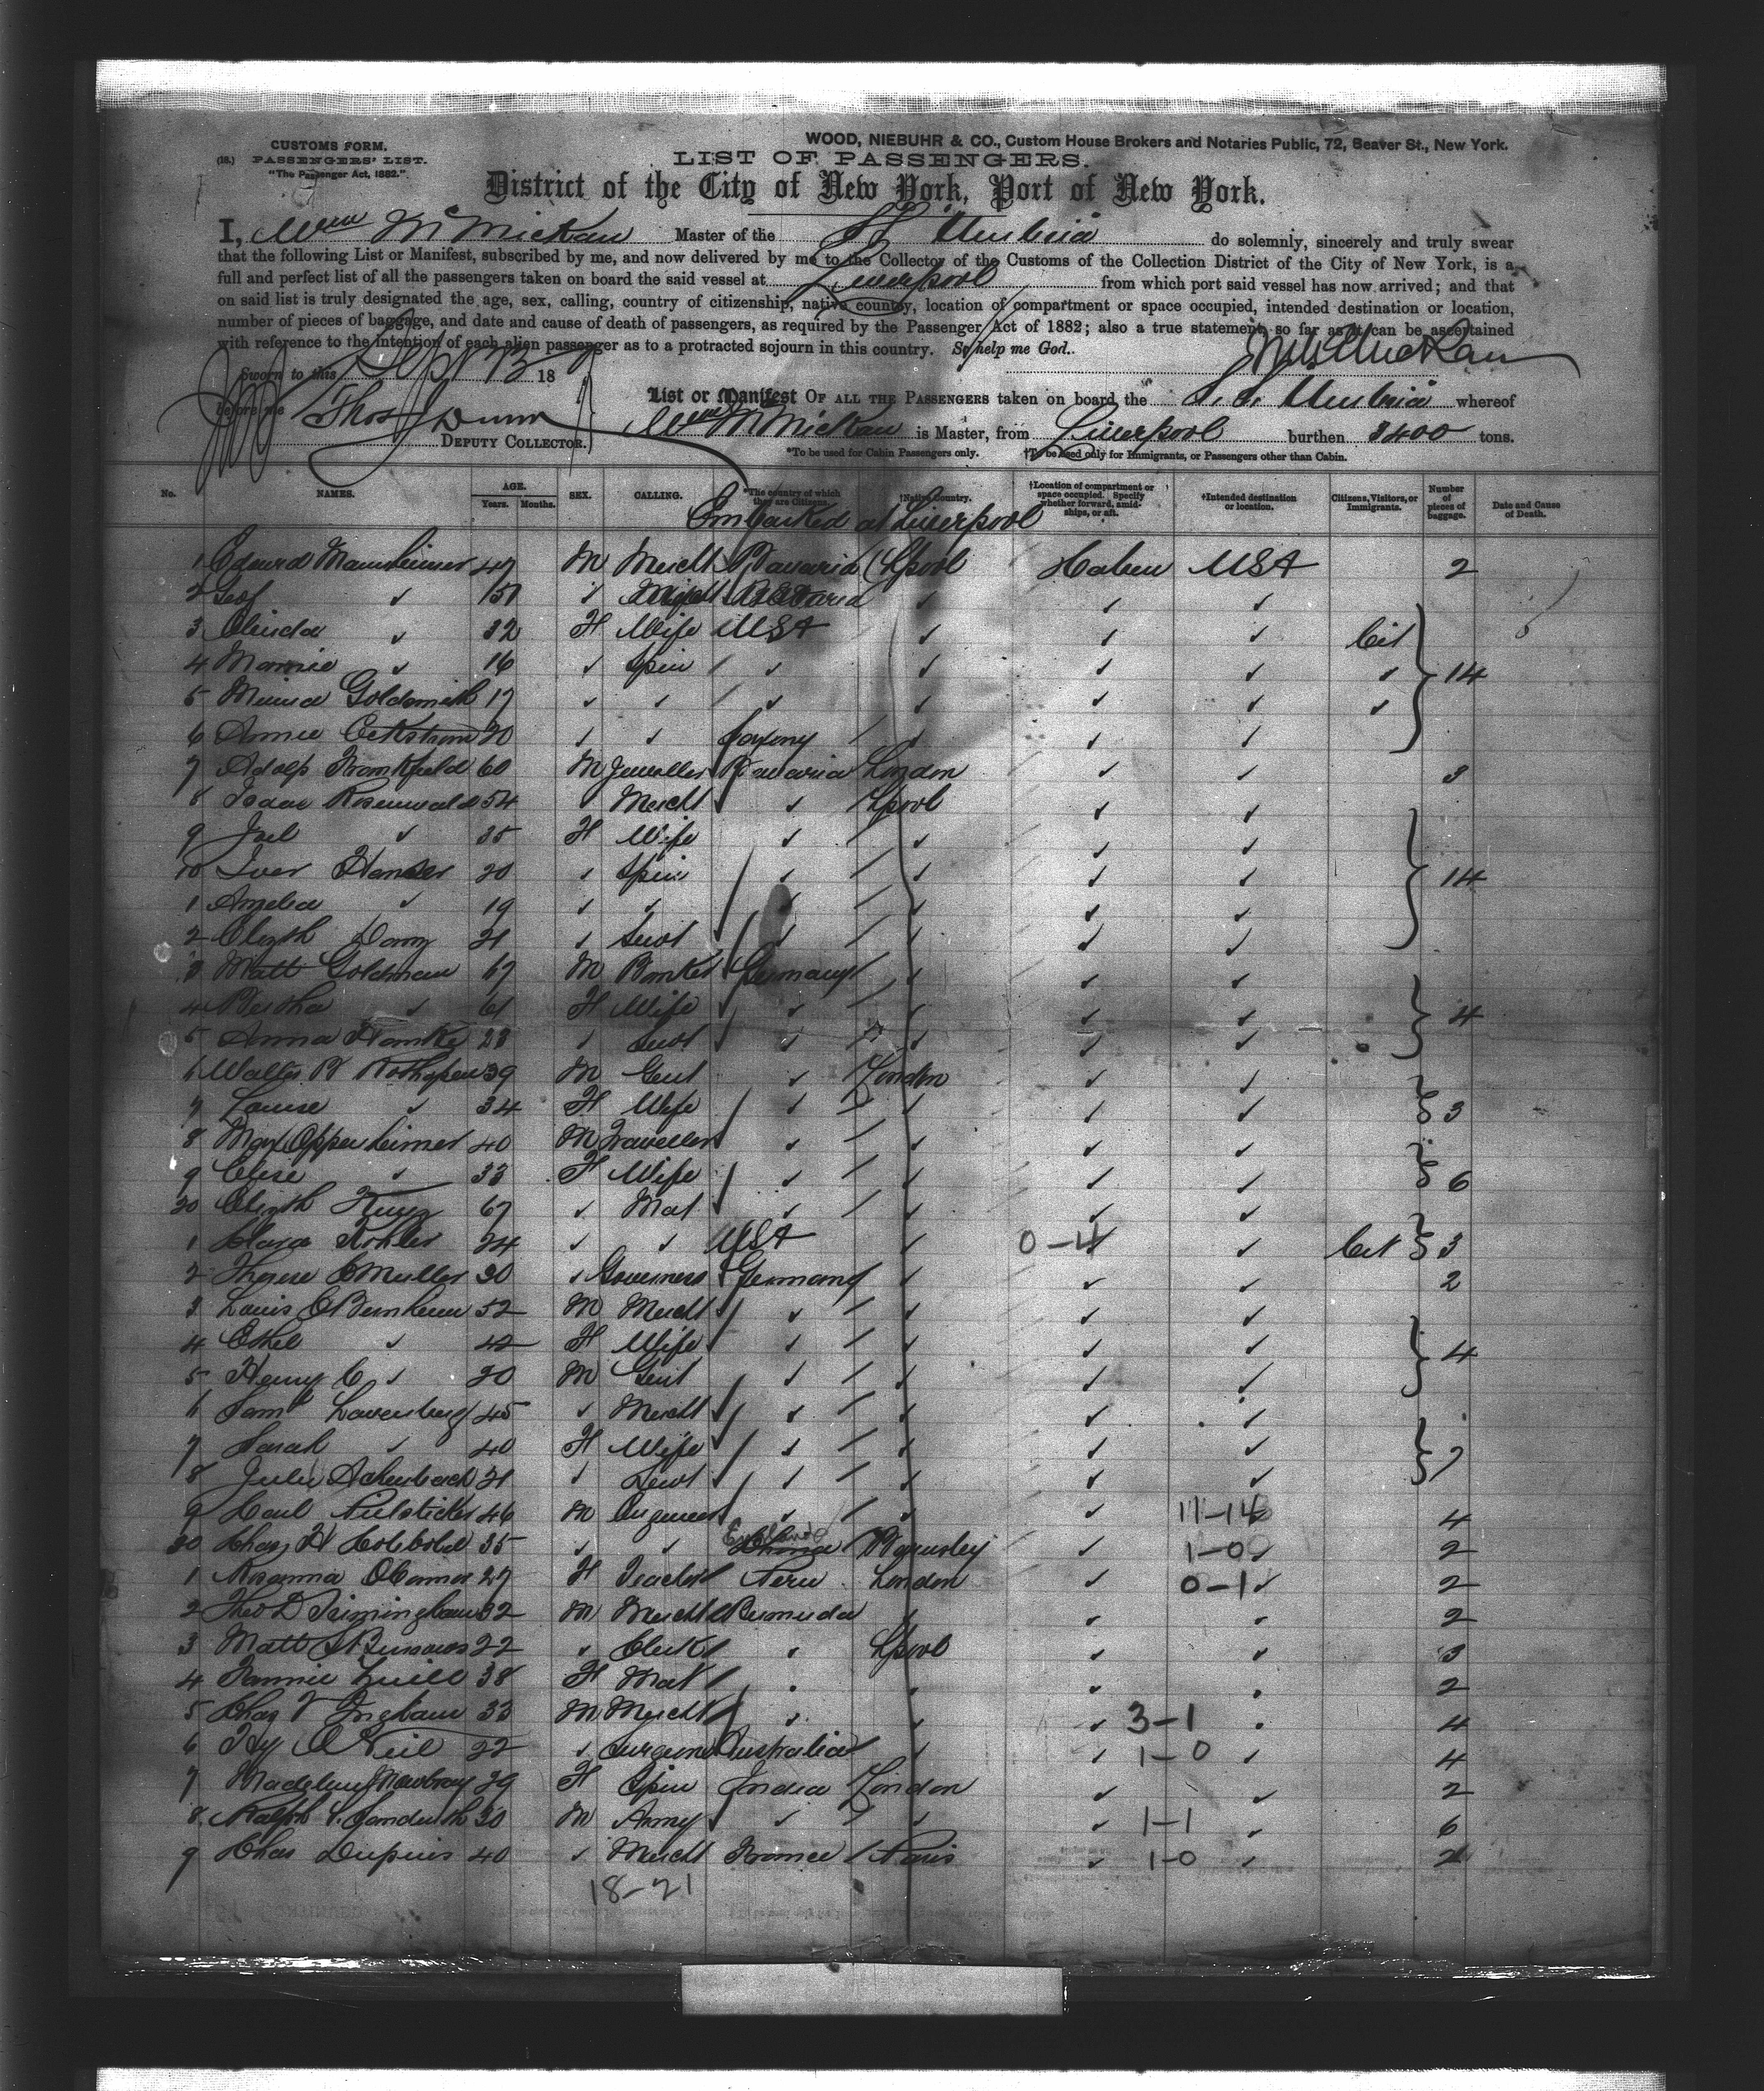 WOOD, NIEBUHR & CO., Custom House Brokers and Notaries Public, 72, Beaver St., New York.
CUSTOMS FORM.
(18.) PASSENGERS' LIST.
"The Passenger Act, 1882."
LIST OF PASSENGERS.
District of the City of New York, Port of New York.
I, Wm McMickan Master of the SS Umbria do solemnly, sincerely and truly swear
that the following List or Manifest, subscribed by me, and now delivered by me to the Collector of the Customs of the Collection District of the City of New York, is a
full and perfect list of all the passengers taken on board the said vessel at Liverpool from which port said vessel has now arrived; and that
on said list is truly designated the age, sex, calling, country of citizenship, native country, location of compartment or space occupied, intended destination or location,
number of pieces of baggage, and date and cause of death of passengers, as required by the Passenger Act of 1882; also a true statement, so far as it can be ascertained
with reference to the intention of each alien passenger as to a protracted sojourn in this country. So help me God.
Wm McMickan
Sworn to this Sept 13 18
before me Thos Dunn
DEPUTY COLLECTOR.
List or Manifest OF ALL THE PASSENGERS taken on board the S.S. Umbria whereof
Wm McMickan is Master, from Liverpool burthen 3400 tons.
*To be used for Cabin Passengers only. †To be used only for Immigrants, or Passengers other than Cabin.
No. NAMES. AGE. Years. Months. SEX. CALLING. *The country of which they are Citizens. †Native Country. †Location of compartment or space occupied. Specify whether forward, amidships, or aft. †Intended destination or location. Citizens, Visitors, or Immigrants. Number of pieces of baggage. Date and Cause of Death.
Embarked at Liverpool
1 Edward Mannheimer 47 M Mercht Bavaria Lpool USA 2
2 ✓ ✓ ✓ ✓ ✓
3 ✓ 32 F Wife USA ✓ ✓ ✓ Cit
4 Mamie ✓ 16 ✓ Spin ✓ ✓ ✓ ✓ ✓ 14
5 Goldsmith 17 ✓ ✓ ✓ ✓ ✓ ✓ ✓
6 Annie 20 ✓ ✓ Saxony ✓ ✓ ✓
7 Adolf Frankfield 60 M Jeweller Bavaria London ✓ ✓ 3
8 Isaac Rosenwald 54 ✓ Mercht ✓ Lpool ✓ ✓
9 ✓ 35 F Wife ✓ ✓ ✓ ✓
10 20 ✓ Spin ✓ ✓ ✓ ✓ 14
1 Amelia ✓ 19 ✓ ✓ ✓ ✓ ✓ ✓
2 Elizth 21 ✓ Servt ✓ ✓ ✓ ✓
3 Matt Goldman 67 M Banker Germany ✓ ✓ ✓
4 Bertha ✓ 61 F Wife ✓ ✓ ✓ ✓ 4
5 Anna 23 ✓ Servt ✓ ✓ ✓ ✓
6 Walter 39 M Gent ✓ London ✓ ✓
7 Louise ✓ 34 F Wife ✓ ✓ ✓ ✓ 3
8 Max Oppenheimer 40 M Traveller ✓ ✓ ✓ ✓
9 Elise ✓ 33 F Wife ✓ ✓ ✓ ✓ 6
20 Elizth 67 ✓ Mat ✓ ✓ ✓ ✓
1 Clara Kohler 24 ✓ ✓ USA ✓ 0-4 ✓ Cit 3
2 Therese Muller 30 ✓ Governess Germany ✓ ✓ ✓ 2
3 Louis Bernheim 52 M Mercht ✓ ✓ ✓ ✓
4 Ethel ✓ 42 F Wife ✓ ✓ ✓ ✓ 4
5 Henry C ✓ 20 M Gent ✓ ✓ ✓ ✓
6 Saml Lavenberg 45 ✓ Mercht ✓ ✓ ✓ ✓
7 Sarah ✓ 40 F Wife ✓ ✓ ✓ ✓ 7
8 Julia Achenbach 21 ✓ Servt ✓ ✓ ✓ ✓
9 Carl Pilsticker 46 M Engineer ✓ ✓ ✓ 11-14 4
30 Chas H 35 ✓ ✓ England Barnsley ✓ 1-0 2
1 Rosanna OConnor 27 F Teacher Peru London ✓ 0-1 ✓ 2
2 Theo D Trimingham 32 M Mercht Bermuda ✓ ✓ ✓ 2
3 Matt 22 ✓ Clerk ✓ Lpool ✓ ✓ 3
4 Fannie 38 F Mat 2
5 Chas Ingham 33 M Mercht ✓ ✓ ✓ 3-1 4
6 Hy O Neil 22 ✓ Surgeon Australia ✓ ✓ 1-0 ✓ 4
7 29 F Spin India London ✓ ✓ 2
8 Ralph 30 M Army ✓ ✓ ✓ 1-1 ✓ 6
9 Chas Dupuis 40 ✓ Mercht France Paris ✓ 1-0 ✓ 2
18-21